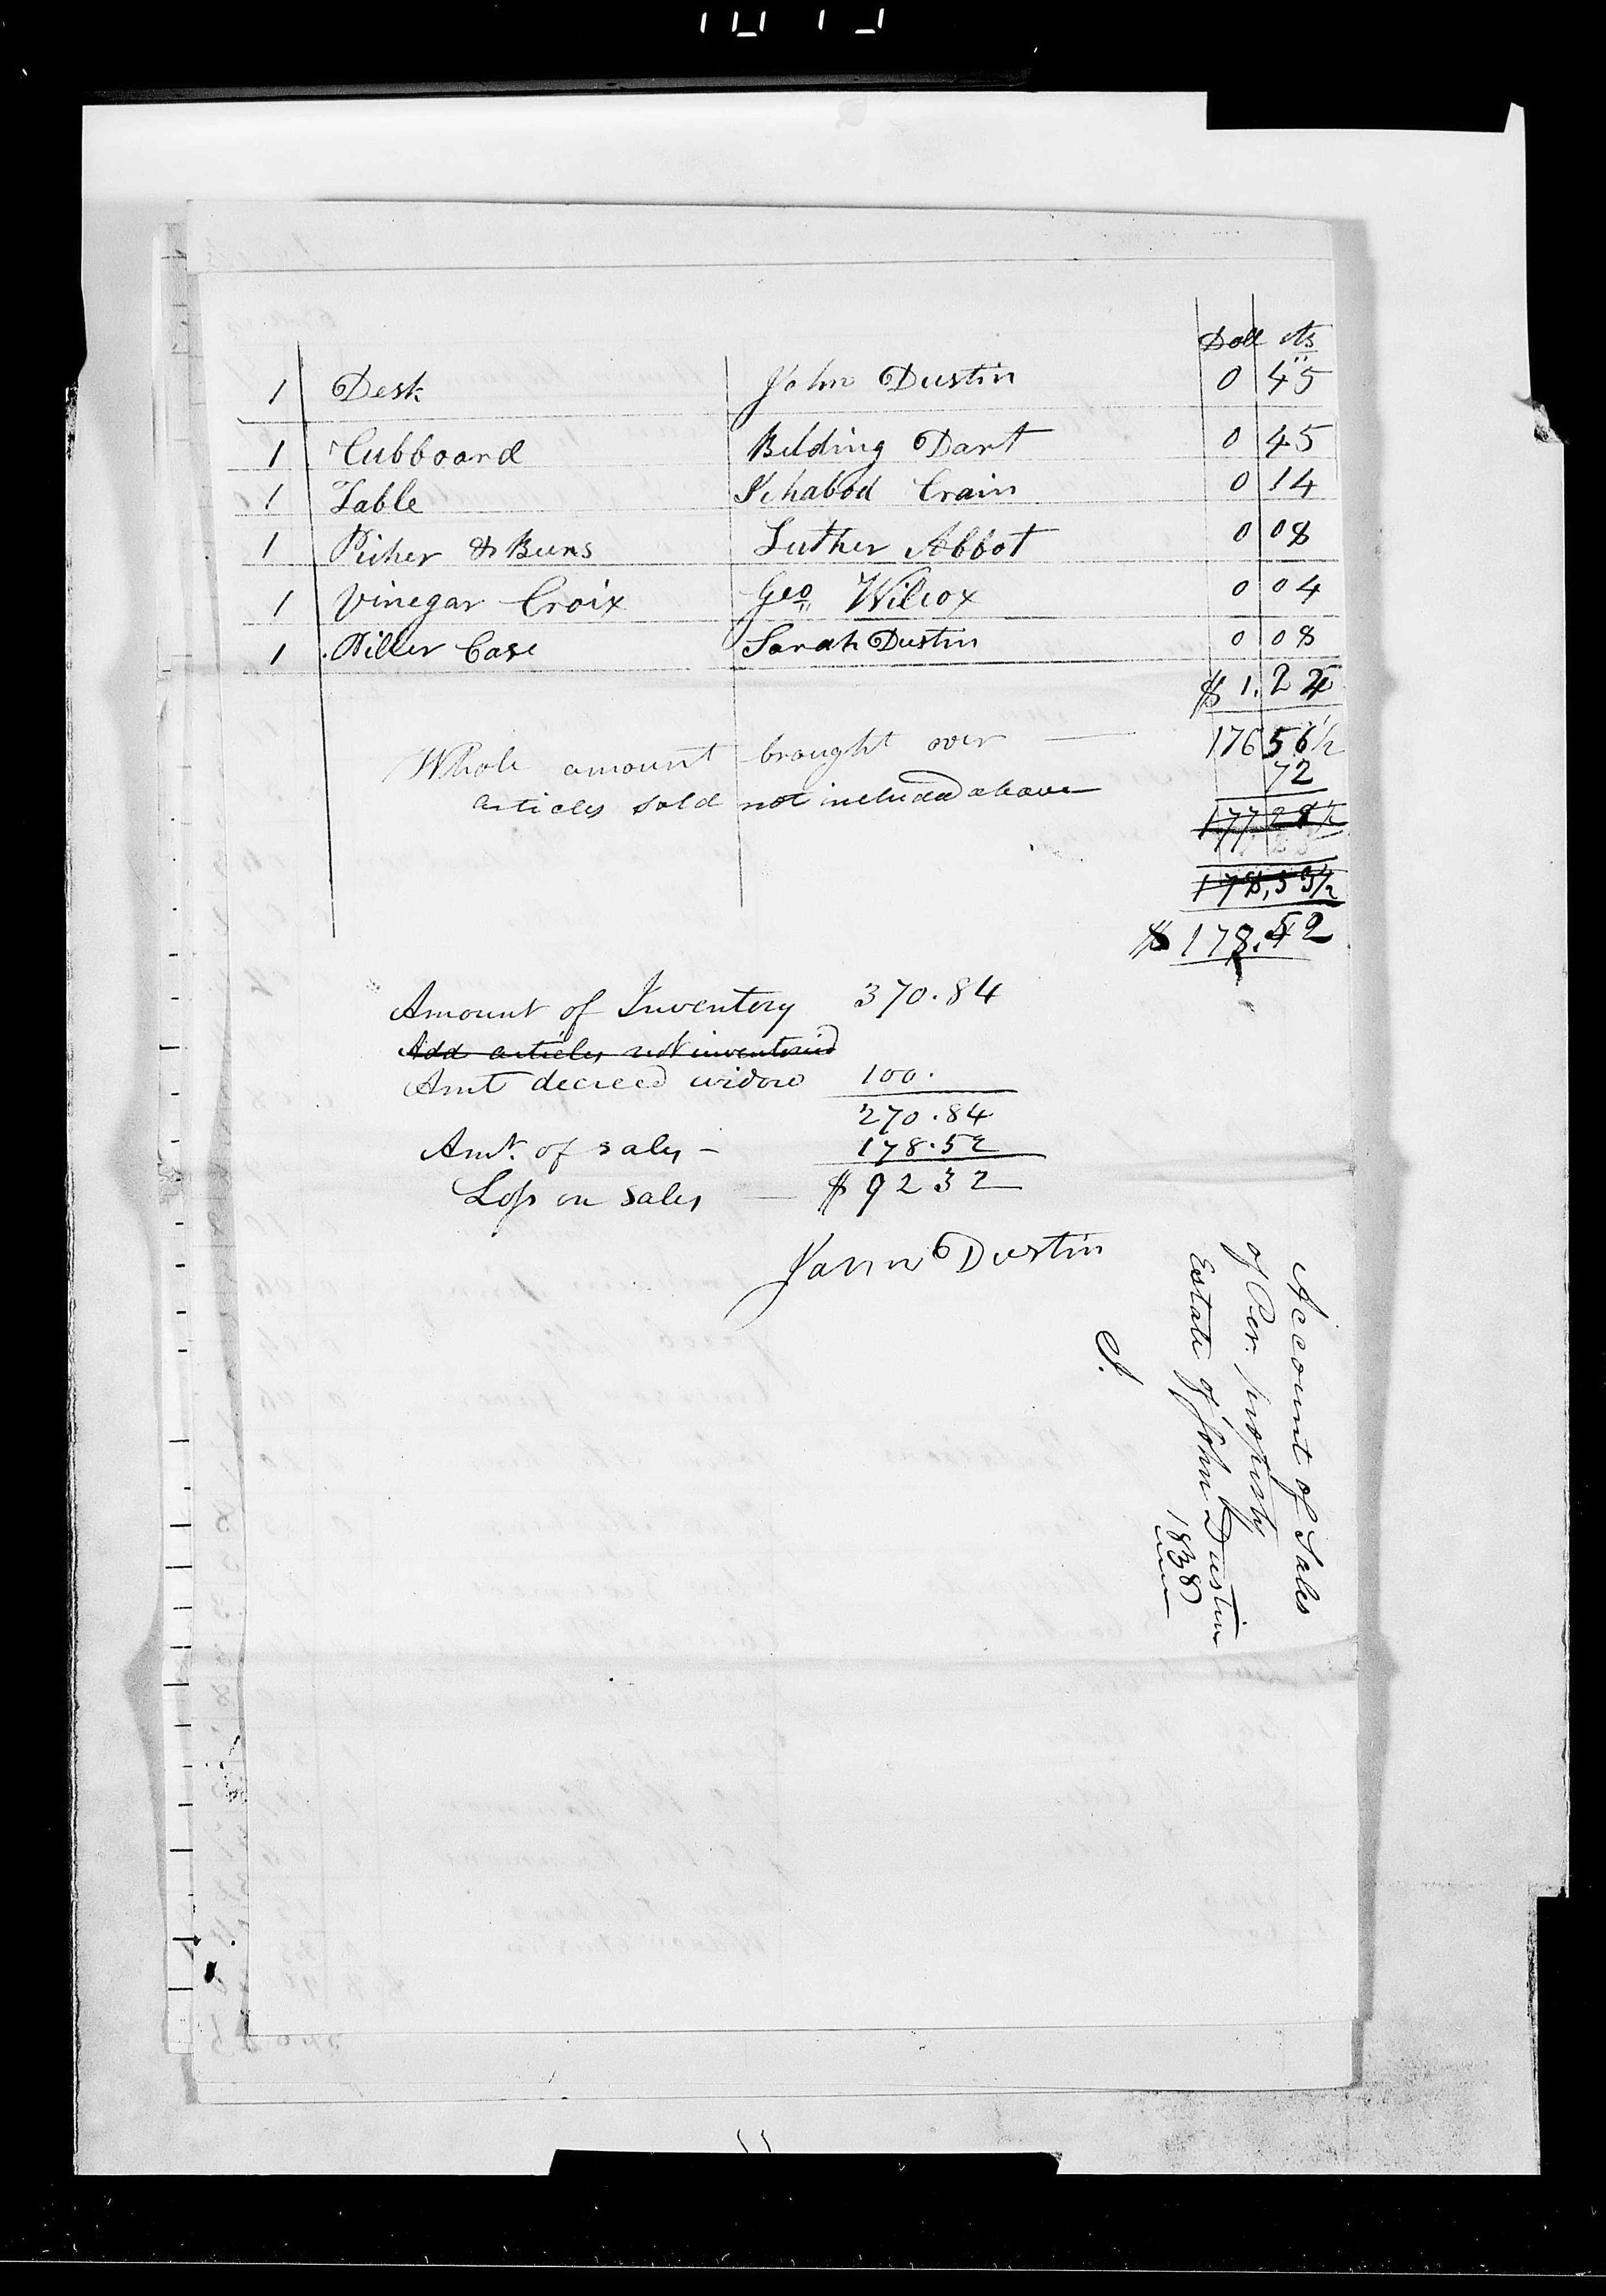 Doll cts
1 Desk John Dustin 0 45
1 Cubboard Belding Dart 0 45
1 Table Ichabod Crain 0 14
1 Picher & Buns Luther Abbot 0 08
1 Vinegar Croix Geo Wilcox 0 04
1 Piller Case Sarah Dustin 0 08
$ 1.24
Whole amount brought over — 176 56 1/2
articles sold not included above 72
177 28 1/2
178,53 1/2
$ 178.52
Amount of Inventory 370.84
Add articles not inventoried
Amt decreed widow 100.
270.84
Amt. of sales – 178.52
Loss on Sales — $ 92 32
John Dustin
Account of Sales
of Per. property
Estate of John Dustin
1838